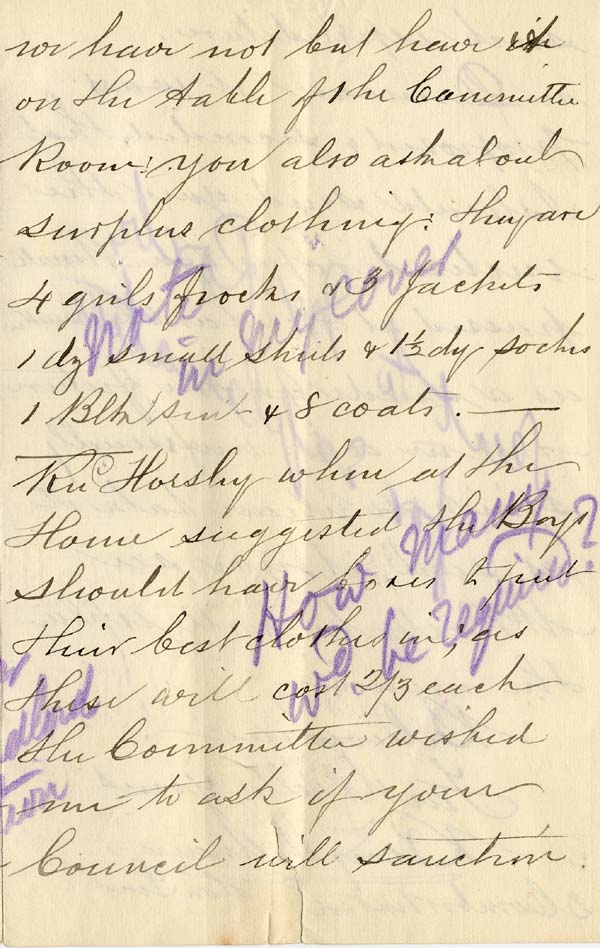 we have not but have it
on the table of the Committee
Room: you also ask about
surplus clothing: they are
4 girls frocks & 3 Jackets
Note
in my cover
1 dz small shirts & 1½ dz socks
1 Blk & 8 coats. —
Revd Horsley when at the
Home suggested the Boys
How many
should have boxes to put
will be required?
their best clothes in; as
these will cost 2/3 each
the Committee wished
me to ask if your
Council will sanction.